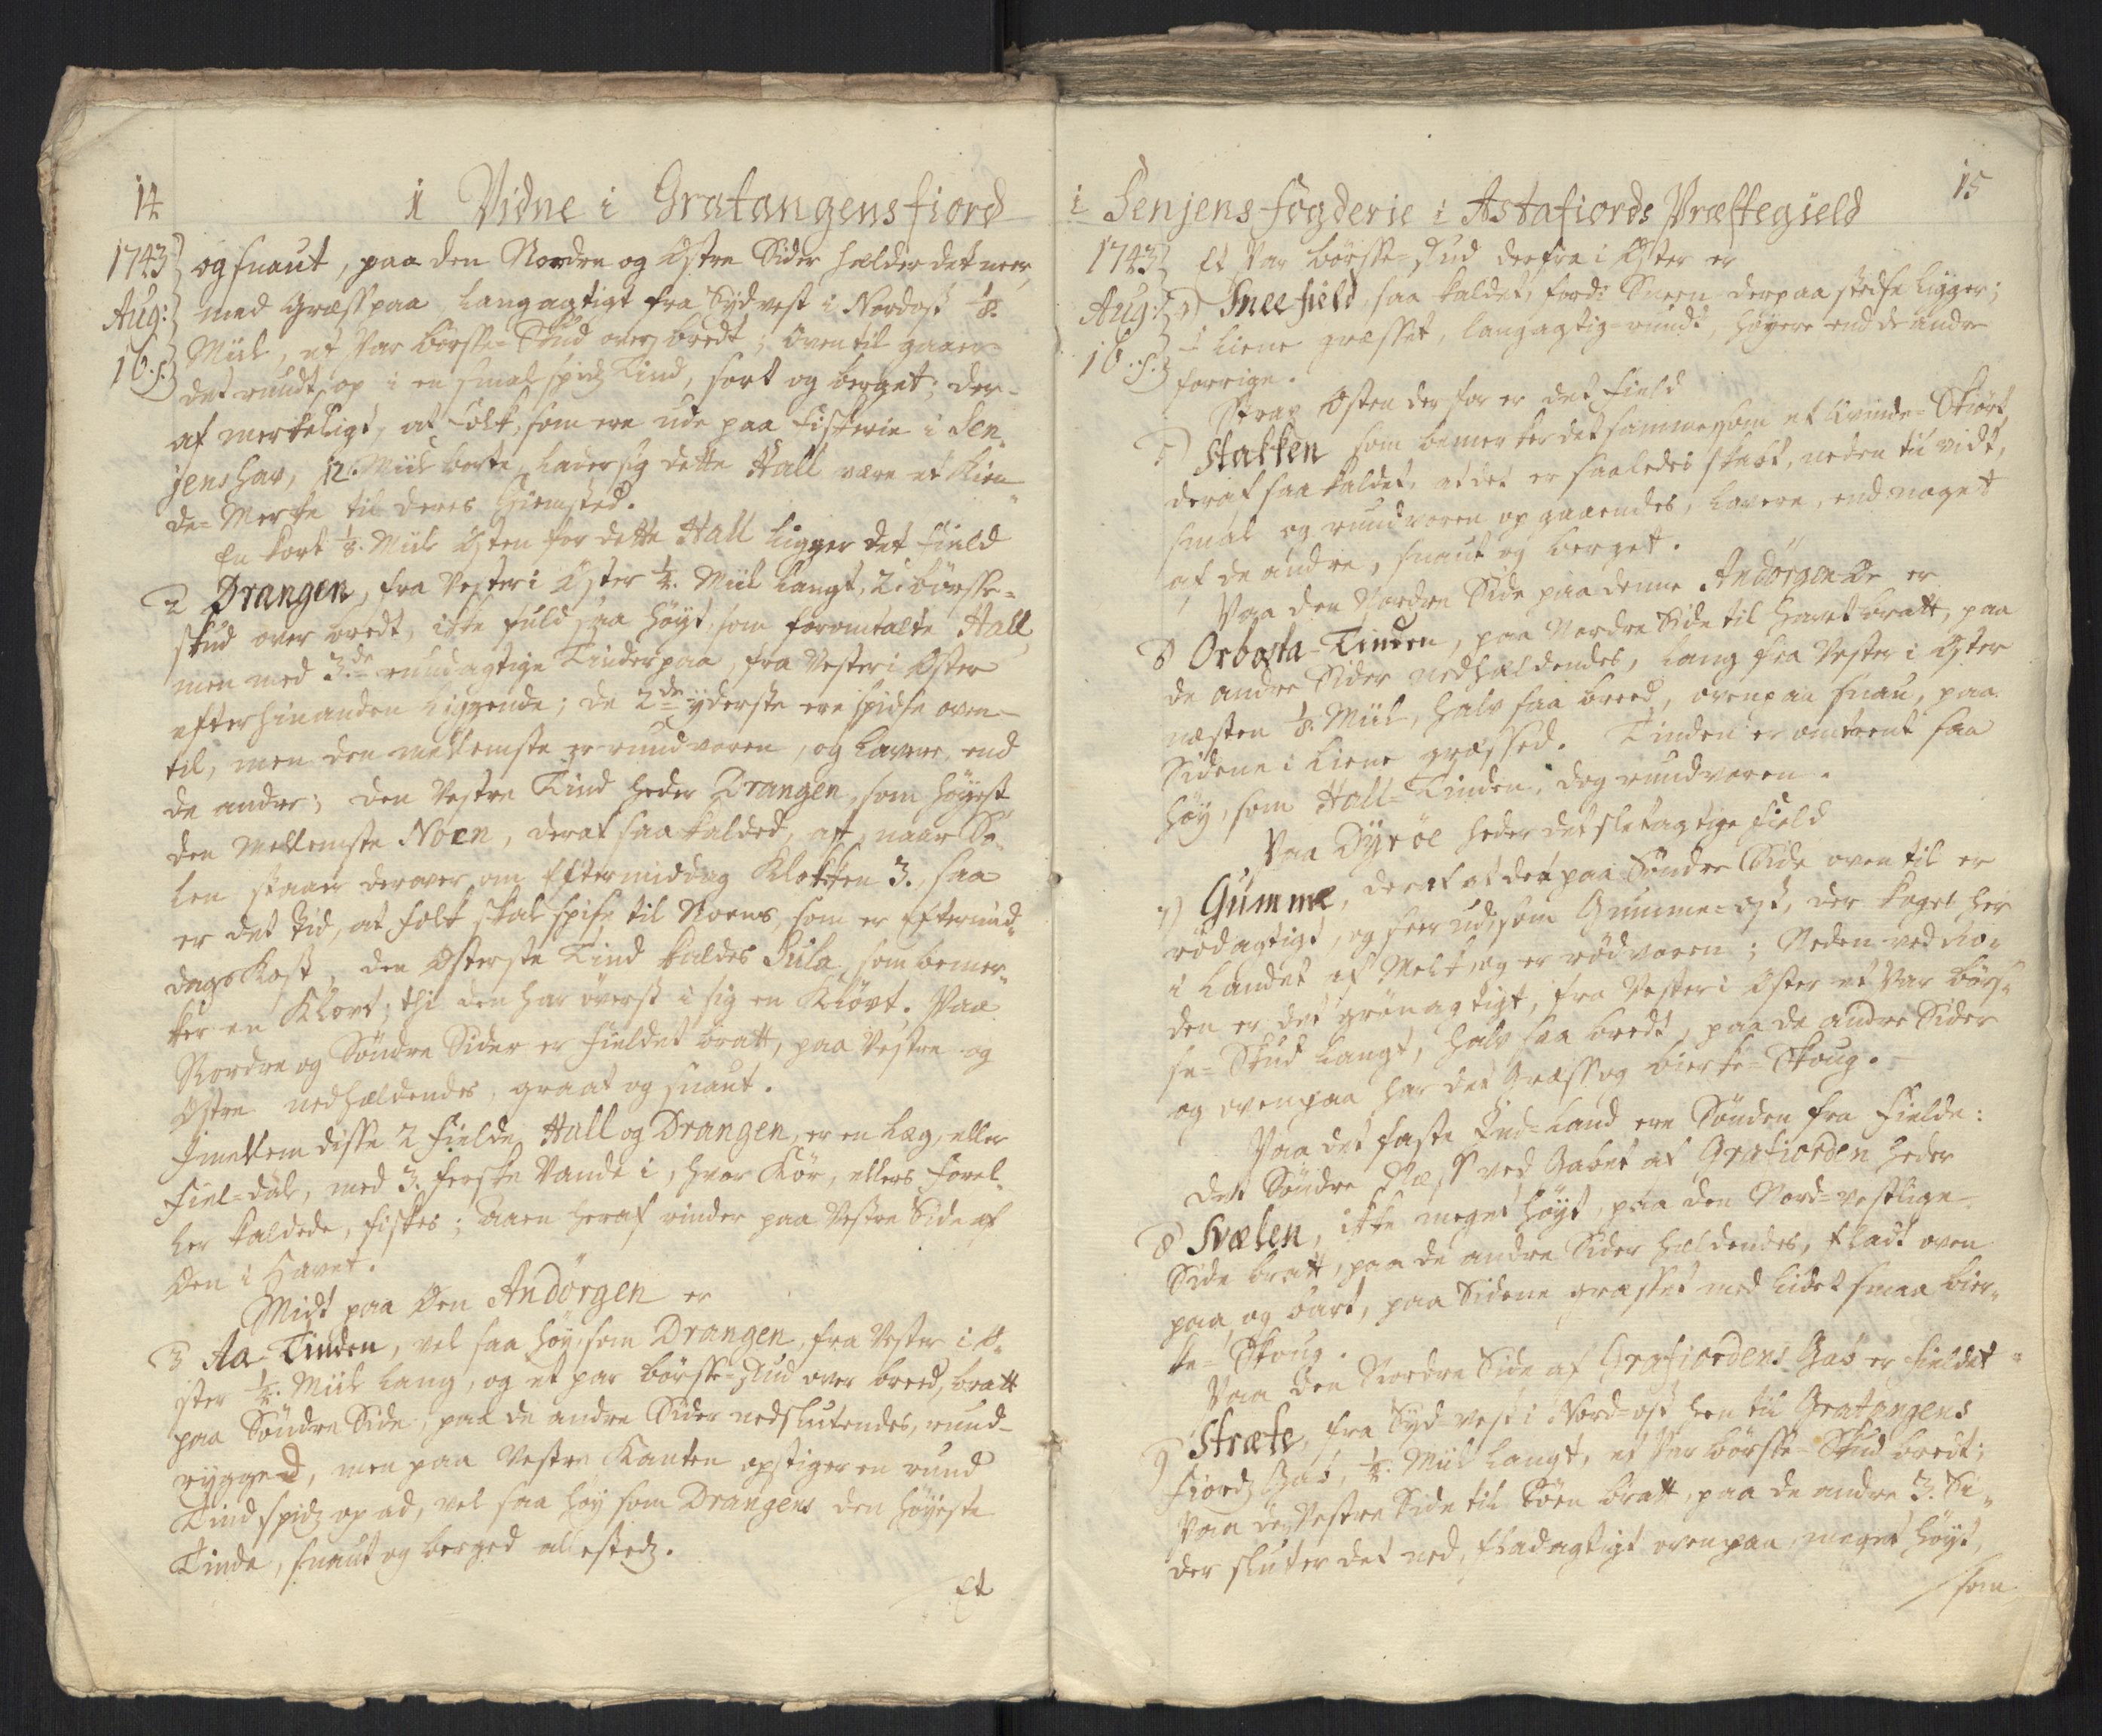 14
1 Vidne i Gratangens fiord
1743 og snaut, paa den Nordre og Østre Sider helder det neer,
Aug: med Græss paa, langagtigt fra Sydvest i Nordost 1/8.
16. s. Miil, et Par Børsse-Skud over bredt; Oventil gaaer
det rundt op i en smal spidz Tind, sort og berget; der-
af merkeligt, at Folk, som ere ude paa Fiskerie i Sen-
jens hav, 12. Miile borte, lader sig dette Hall være et Kien-
de-Merke til deres Hiemsted.
En kort 1/8. Miil Østen for dette Hall ligger det Field
2 Drangen, fra Vester i Øster 1/4. Miil langt, 2. Børsse-
skud over bredt, ikke fuld saa høyt som foromtalte Hall,
men med 3de rundagtige Tinder paa, fra Vester i Øster
efter hinanden liggende; de 2de yderste ere spidse oven-
til, men den mellemste er rundvoren, og lavere, end
de andre; den Vestre Tind heder Drangen, som høyest
den Mellemste Noen, deraf saa kalded, at, naar So-
len staaer derover om Eftermiddag Klokken 3., saa
er det Tid, at folk skal spise til Noens, som er Eftermid-
dags Kost, den Østerste Tind kaldes Sula, som bemer-
ker en Kløvt; thi den har øverst i sig en Kløvt. Paa
Nordre og Søndre Sider er Fieldet bratt, paa Vestre og
Østre nedheldendes, graat og snaut.
Imellem disse 2 Fielde, Hall og Drangen, er en Læg, eller
Fiel-dal, med 3. ferske Vande i, hvor Kör, ellers Forel-
ler kaldede, fiskes; Aaen heraf rinder paa Vestre Side af
Øen i Havet.
Midt paa Øen Andörgen er
3 Aa-Tinden, vel saa høy, som Drangen, fra Vester i Ø-
ster 1/4. Miil lang, og et par børsse-Skud over breed, bratt
paa Søndre Side, paa de andre Sider nedslutendes, rund-
rygged, men paa Vestre Kanten opstiger en rund
Tind spidz op ad, vel saa høy som Drangens den høyeste
Tinde, snaut og berged allestedz.
Et
15
i Senjens fogderie i Astafiords Præstegield
1743 Et Par børsse-Skud derfra i Øster er
Aug: 4) Sneefield, saa kaldet, fordi Sneen derpaa stedse ligger;
16. s. i Liene græsset, langagtig-rundt, høyere end de andre
forrige.
Strax Østen derfor er det Field
5) Stakken som bemerker det samme, som et Qvinde-Skiørt,
deraf saa kaldet, at det er saaledes skabt, neden til vidt,
smal og rundvoren opgaaendes, lavere, end noget
af de andre, snaut og berget.
Paa den Nordre Side paa denne Andörgen Øe er
6 Orbosta-Tinden, paa Nordre Side til havet bratt, paa
de andre Sider nedheldendes, lang fra Vester i Øster
næsten 1/8. Miil, halv saa breed, ovenpaa snau, paa
Sidene i Liene græssed. Tinden er omtrent saa
høy, som Hall-Tinden, dog rundvoren.
Paa Dyröe heder det sletagtige Field
7) Gumme, deraf at det paa Søndre Side oventil er
rödagtigt, og seer ud, som Gumme-ost, der koges her
i Landet af Melk, og er rödvoren; Neden ved Ro-
den er det grönagtigt, fra Vester i Øster et Par börs-
se-Skud langt, halv saa bredt, paa de andre Sider
og ovenpaa har det Græss og bierke-Skoug.
Paa det faste Ind-Land ere Sønden fra Fielde:
det Søndre Næss ved Gabet af Grafiorden heder
8 Svælen, ikke meget høyt, paa den Nord-vestlige
Side bratt, paa de andre Sider heldendes, fladt oven
paa, og bart, paa Sidene græsset med lidet smaa bier-
ke-Skoug.
Paa den Nordre Side af Grafiordens Gab er Fieldet
9 Stræte, fra Syd-vest i Nord-ost hen til Gratangens
Fiordz Gab, 1/4. Miil langt, et Par børsse-Skud bredt;
Paa den Vestre Side til Søen bratt, paa de andre 3. Si-
der sluter det ned, fladagtigt ovenpaa, meget høyt,
som